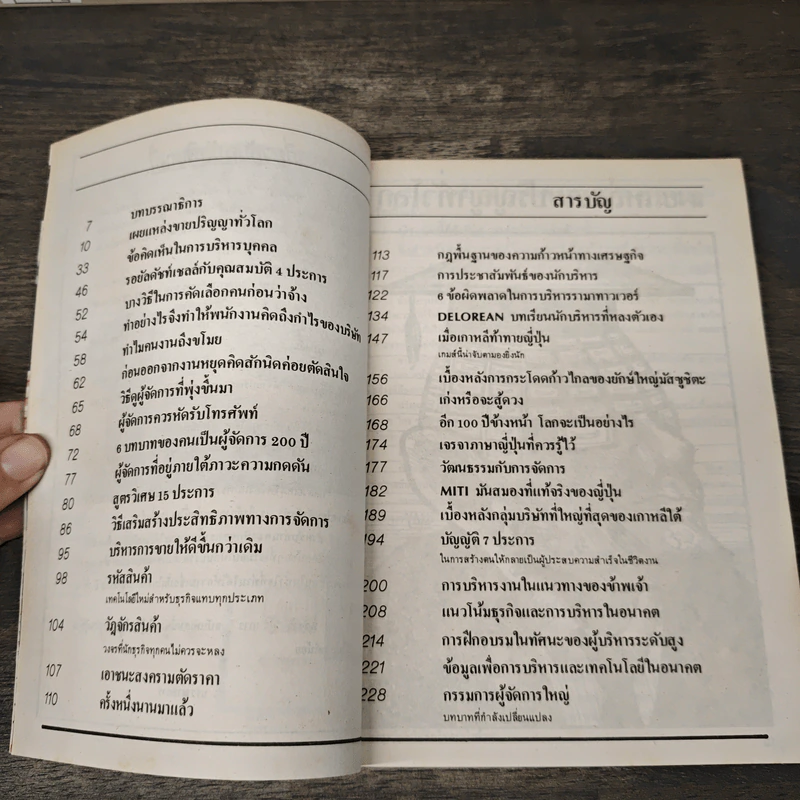 7 บทบรรณาธิการ
10 เผยแหล่งขายปริญญาทั่วโลก
33 ข้อคิดเห็นในการบริหารบุคคล
46 รอยัลดัทช์เชลล์กับคุณสมบัติ 4 ประการ
52 บางวิธีในการคัดเลือกคนก่อนว่าจ้าง
54 ทำอย่างไรจึงทำให้พนักงานคิดถึงกำไรของบริษัท
58 ทำไมคนงานถึงขโมย
62 ก่อนออกจากงานหยุดคิดสักนิดค่อยตัดสินใจ
65 วิธีดูผู้จัดการที่พุ่งขึ้นมา
68 ผู้จัดการควรหัดรับโทรศัพท์
72 6 บทบาทของคนเป็นผู้จัดการ 200 ปี
77 ผู้จัดการที่อยู่ภายใต้ภาวะความกดดัน
80 สูตรวิเศษ 15 ประการ
86 วิธีเสริมสร้างประสิทธิภาพทางการจัดการ
95 บริหารการขายให้ดีขึ้นกว่าเดิม
98 รหัสสินค้า
เทคโนโลยีใหม่สำหรับธุรกิจแทบทุกประเภท
104 วัฏจักรสินค้า
วงจรที่นักธุรกิจทุกคนไม่ควรจะหลง
107 เอาชนะสงครามตัดราคา
110 ครั้งหนึ่งนานมาแล้ว
สารบัญ
113 กฎพื้นฐานของความก้าวหน้าทางเศรษฐกิจ
117 การประชาสัมพันธ์ของนักบริหาร
122 6 ข้อผิดพลาดในการบริหารรามาทาวเวอร์
134 DELOREAN บทเรียนนักบริหารที่หลงตัวเอง
147 เมื่อเกาหลีท้าทายญี่ปุ่น
เกมส์นี้น่าจับตามองยิ่งนัก
156 เบื้องหลังการกระโดดก้าวไกลของยักษ์ใหญ่มัสซูชิตะ
166 เก่งหรือจะสู้ดวง
168 อีก 100 ปีข้างหน้า โลกจะเป็นอย่างไร
174 เจรจาภาษาญี่ปุ่นที่ควรรู้ไว้
177 วัฒนธรรมกับการจัดการ
182 MITI มันสมองที่แท้จริงของญี่ปุ่น
189 เบื้องหลังกลุ่มบริษัทที่ใหญ่ที่สุดของเกาหลีใต้
194 บัญญัติ 7 ประการ
ในการสร้างตนให้กลายเป็นผู้ประสบความสำเร็จในชีวิตงาน
200 การบริหารงานในแนวทางของข้าพเจ้า
208 แนวโน้มธุรกิจและการบริหารในอนาคต
214 การฝึกอบรมในทัศนะของผู้บริหารระดับสูง
221 ข้อมูลเพื่อการบริหารและเทคโนโลยีในอนาคต
228 กรรมการผู้จัดการใหญ่
บทบาทที่กำลังเปลี่ยนแปลง